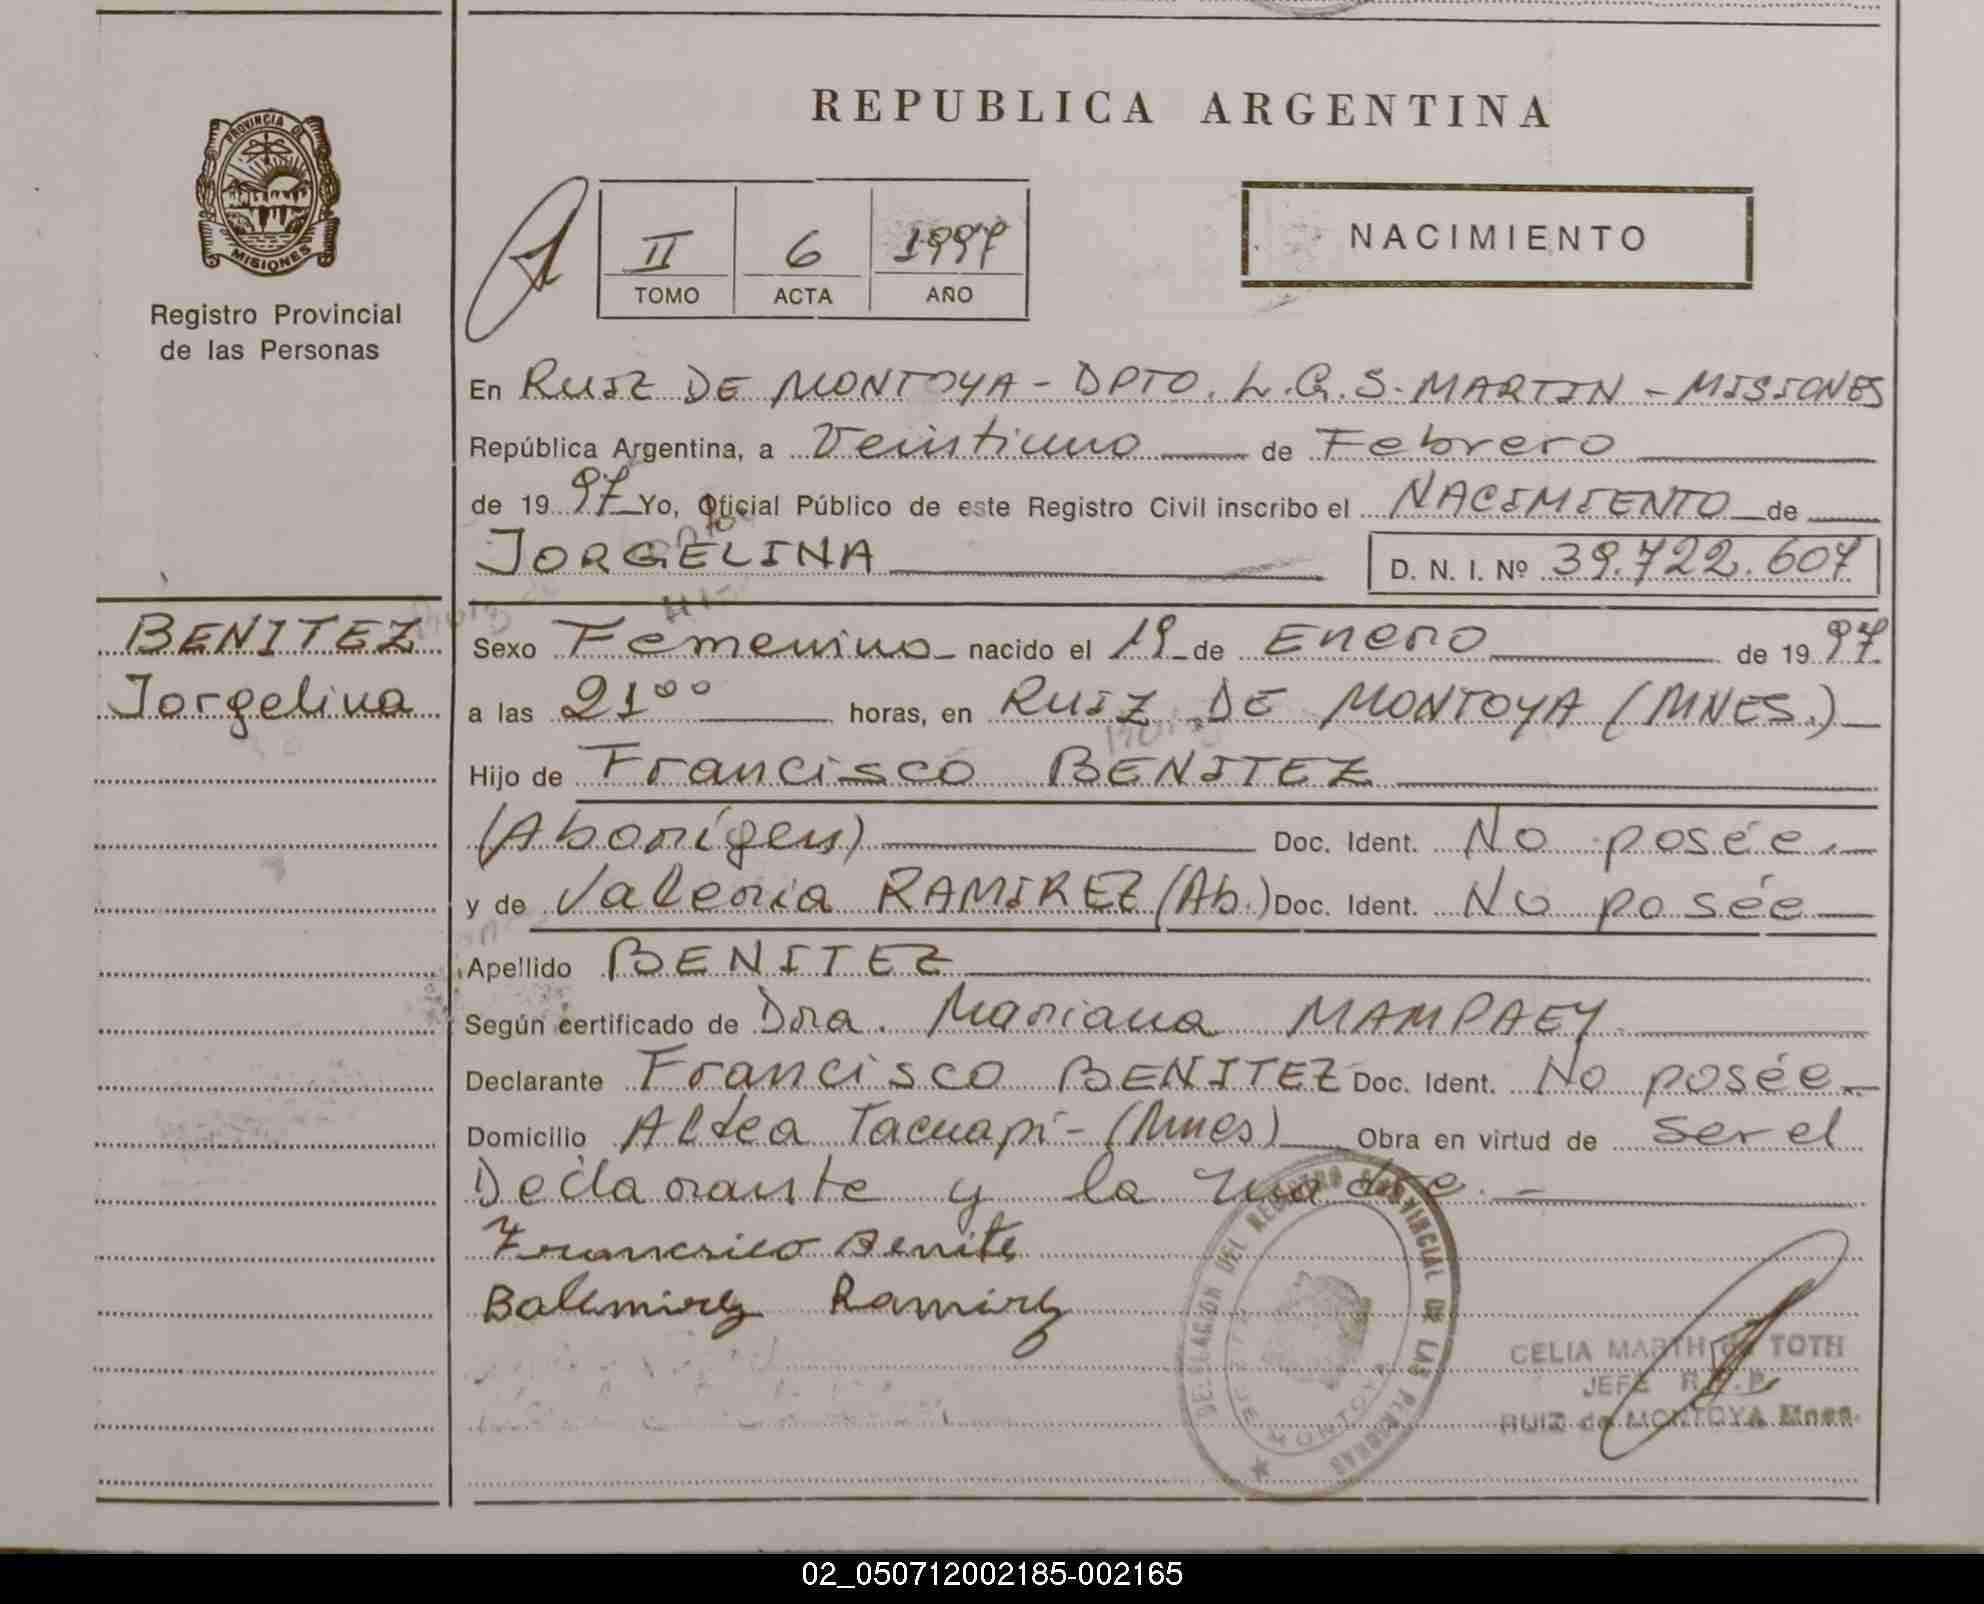 REPUBLICA ARGENTINA
PROVINCIA DE
MISIONES
Registro Provincial
de las Personas
II 6 1997
TOMO ACTA AÑO
NACIMIENTO
En RUIZ DE MONTOYA - DPTO. L.G.S. MARTIN - MISIONES
República Argentina, a Veintiuno de Febrero
de 1997 Yo, Oficial Público de este Registro Civil inscribo el NACIMIENTO de
JORGELINA D. N. I. Nº 39.722.607
BENITEZ
Jorgelina
Sexo Femenino nacido el 19 de Enero de 1997.
a las 21 00 horas, en RUIZ DE MONTOYA (MNES.)
Hijo de Francisco BENITEZ
(Aborígen) Doc. Ident. No posée.
y de Valeria RAMIREZ (Ab.) Doc. Ident. No posée
Apellido BENITEZ
Según certificado de Dra. Mariana MAMPAEY
Declarante Francisco BENITEZ Doc. Ident. No posée.
Domicilio Aldea Tacuapí - (Mnes) Obra en virtud de ser el
Declarante y la madre. -
Francisco Benite
Ramirez
DELEGACION DEL REGISTRO PROVINCIAL DE LAS PERSONAS
DE MONTOYA
CELIA MARTHA TOTH
JEFE R.P.P.
RUIZ de MONTOYA Mnes.
02_050712002185-002165